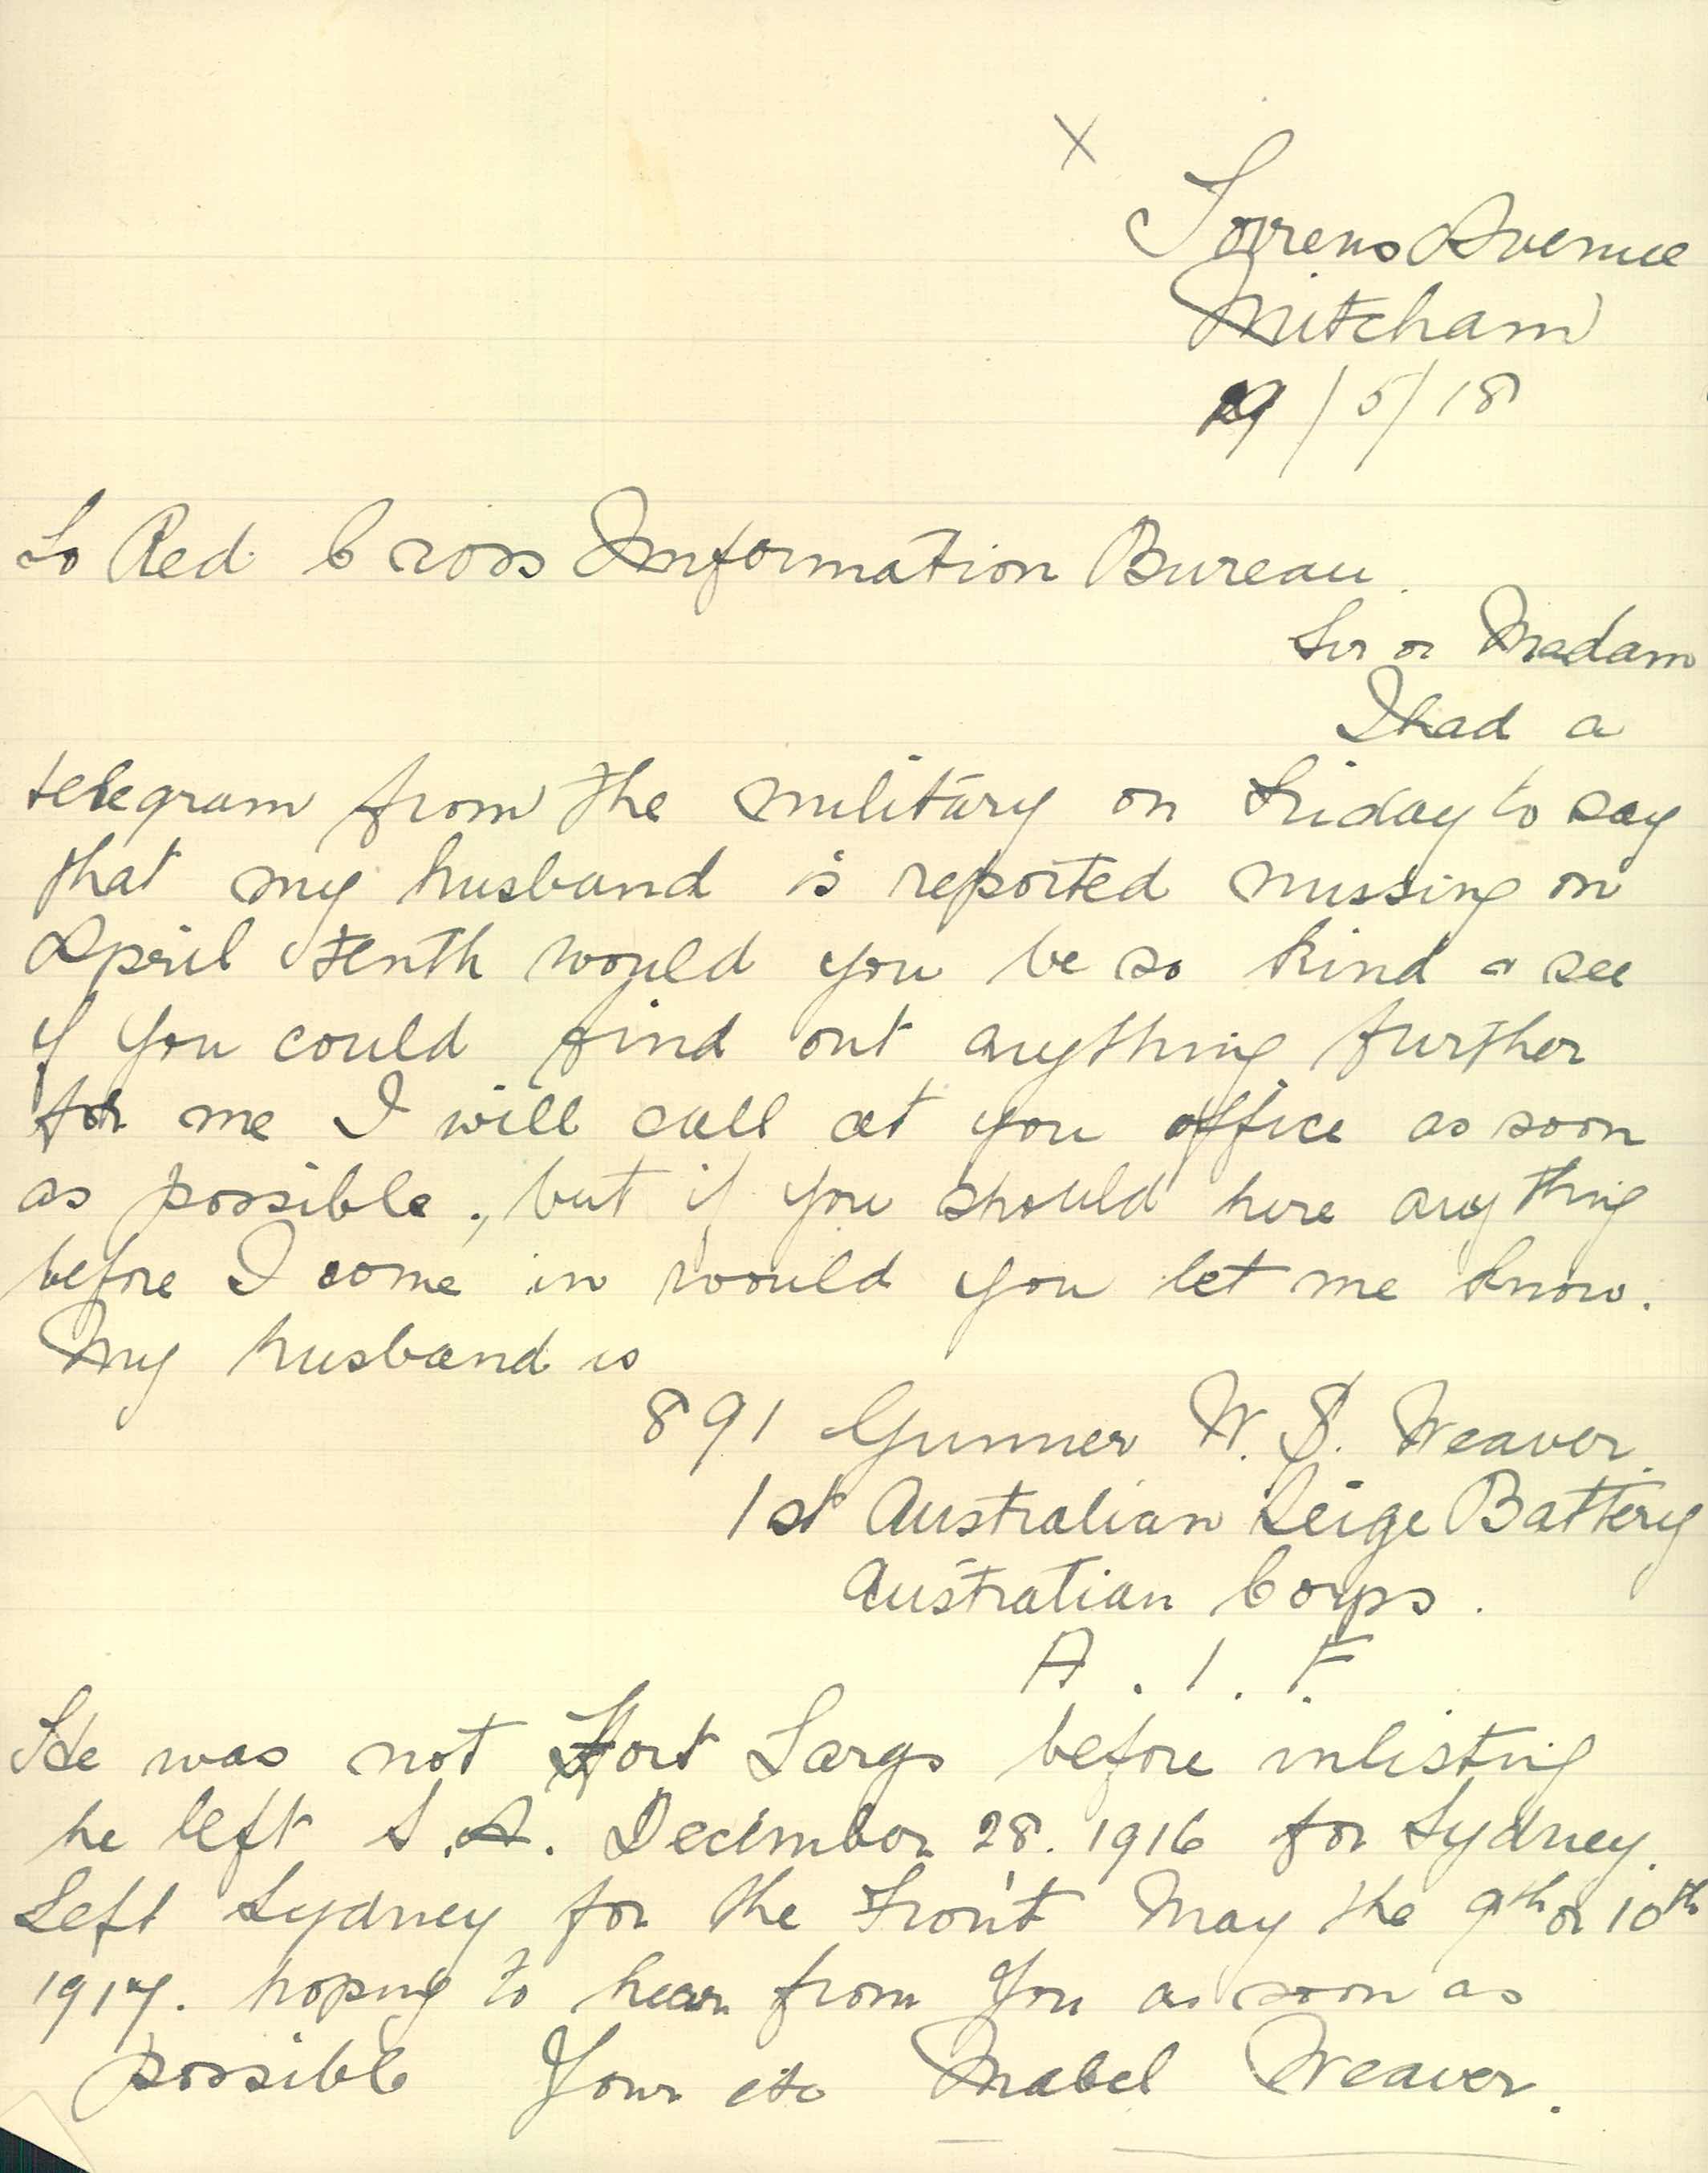 X
Torrens Avenue
Mitcham
29/5/18
To Red Cross Information Bureau.
Sir or Madam
I had a
telegram from the military on Friday to say
that my husband is reported missing on
April tenth would you be so kind & see
if you could find out anything further
for me I will call at you office as soon
as possible, but if you should here anything
before I come in would you let me know.
My husband is
891 Gunner W. S. Weaver.
1st Australian Seige Battery
Australian Corps.
A.I.F.
He was not Fort Largs before inlisting
he left S.A. December 28. 1916 for Sydney.
Left Sydney for the Front May the 9th or 10th
1917. hoping to hear from you as soon as
possible Your etc Mabel Weaver.